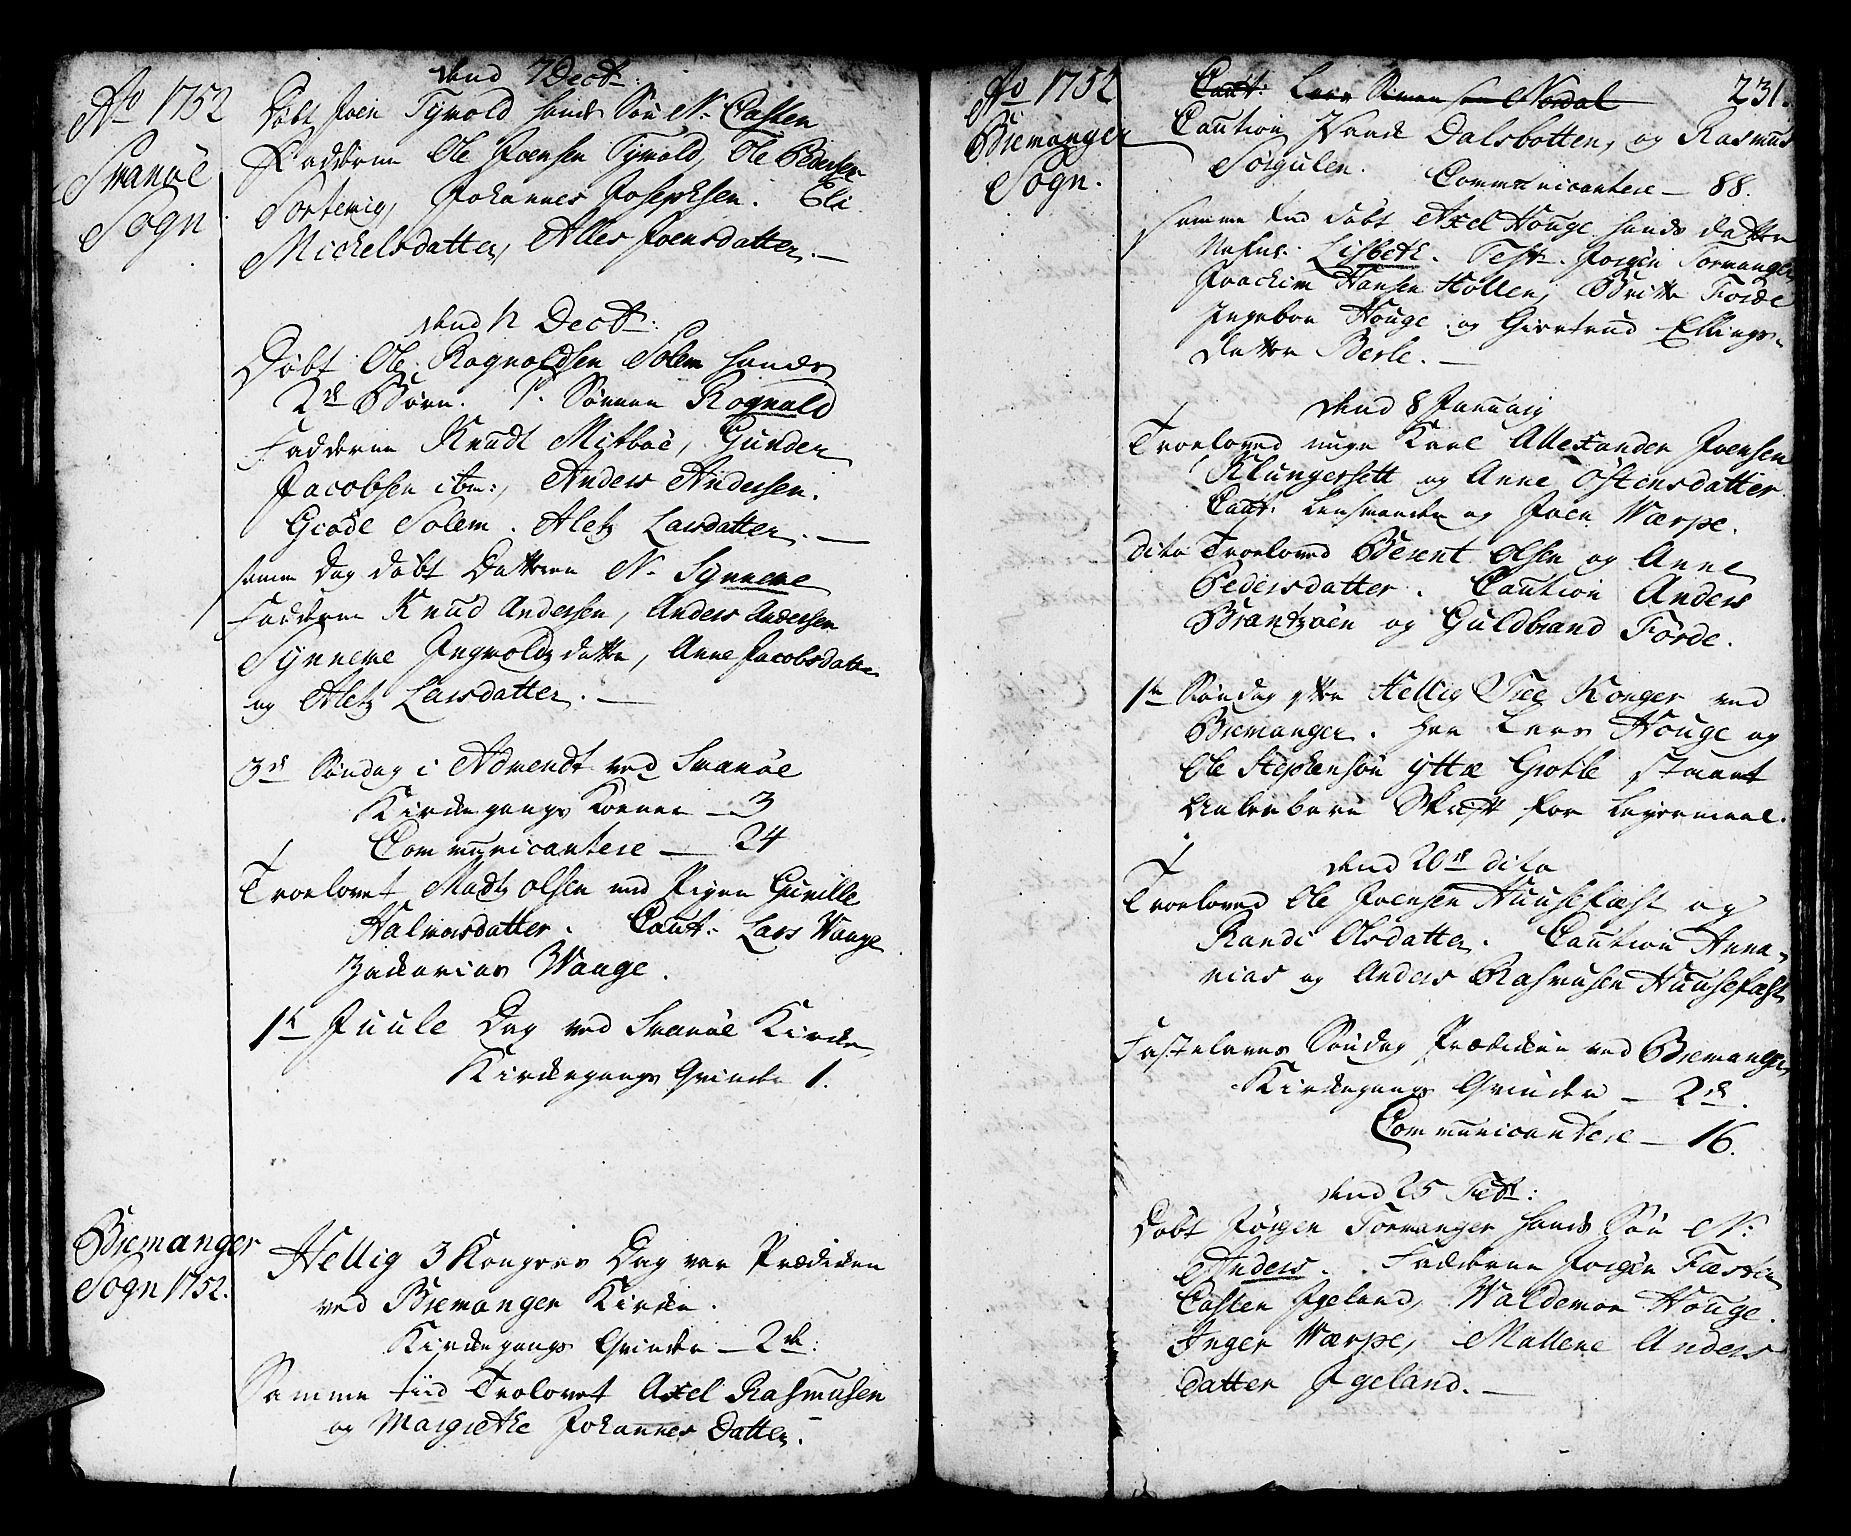 Ao 1752
Svanöe
Sogn
dend 7 Decbr:
Döbt Joen Tyvold hands Sön N. Casten
Fadderne Ole Joensen Tyvold, Ole Pedersen
Sortevig, Johannes Josephsen. Eli
Michelsdatter, Alles Joensdatter.
dend 12 Decbr:
Döbt Ole Ragnoldsen Solem hands
2de Börn. 1. Sönnen Rognald
Fadderne Knudt Mitböe, Gunder
Jacobsen ibm:, Anders Andersen.
Giöde Solem. Aletz Larsdatter.
samme Dag döbt Datteren N. Synneve
Fadderne Knud Andersen, Anders Andersen
Synneve Ingvoldz datter, Anne Jacobsdatter
og Aletz Larsdatter.
3de Söndag i Advendt ved Svanöe
Kirkegangs Koener 3
Communicantere 24
Troelovet Madtz Olsen med Pigen Guville
Halvorsdatter. Caut: Lars Waage
Zacharias Waage.
1ste Juule Dag ved Svanöe Kirke
Kirkegangs Qvinder 1.
Bremanger
Sogn 1752.
Hellig 3 Kongers Dag var Prædiken
ved Bremanger Kirke.
Kirkegangs Qvinder 2de:
Samme tiid Trolovet Axel Rasmusen
og Margrethe Johannes Datter.
Ao 1752
Bremanger
Sogn.
231.
Caut: Lars Simensen Nordal
Caution Dalsbotten, og Rasmus
Sörgulen. Communicantere 88.
samme tiid döbt Axel Houge hands datter
Nafnl. Lisbeth. Test. Jörgen Torvanger
Joachim Hansen Hollen, Britte Förde
Ingebor Houge og Giertrud Ellings
datter Berle.
dend 8 Januarij
Troeloved unge Karl Allexander Joensen
Klungersett og Anne Östensdatter
Caut: Lensmanden og Joen Værpe.
dito Troeloved Berent Olsen og Anne
Pedersdatter. Caution Anders
Brantzöen og Guldbrand Förde.
1ste Söndag efter Hellig Tre Konger ved
Bremanger. Lars Houge og
Ole Stephensön yttre Grotle staaet
Aabenbare Skrift for Leyermaal.
dend 20de dito
Troeloved Ole Joensen Huusefæst og
Randi Olsdatter. Caution Anna-
nias og Anders Rasmusen Huusefæst
Fastelavns Söndag Prædiken ved Bremanger
Kirkegangs Qvinder 2de.
Communicantere 16.
dend 25 Febr:
Döbt Jörgen Torvanger hands Sön N:
Anders. Fadderne Jörgen
Casten Igeland, Waldemor Houge.
Inger Værpe, Mallene Anders
datter Igeland.